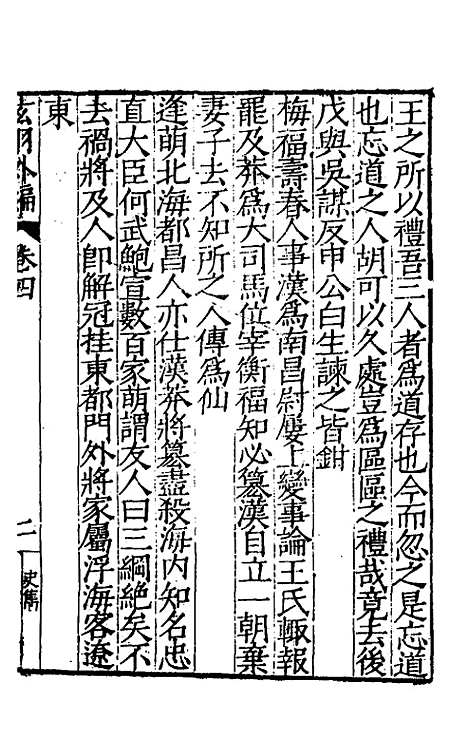 王之所以禮吾三人者爲道存也今而忽之是忘道
也忘道之人胡可以久處豈爲區區之禮哉竟去後
戊與吳謀反申公白生諫之皆鉗
梅福壽春人事漢爲南昌尉屢上變事論王氏輒報
罷及莽爲大司馬位宰衡福知必篡漢自立一朝棄
妻子去不知所之人傳爲仙
逢萌北海都昌人亦仕漢莽將篡盡殺海内知名忠
直大臣何武鮑宣數百家萌謂友人曰三綱絶矣不
去禍將及人卽解冠挂東都門外將家屬浮海客遼
東
玄羽外編 卷四 二 史雋